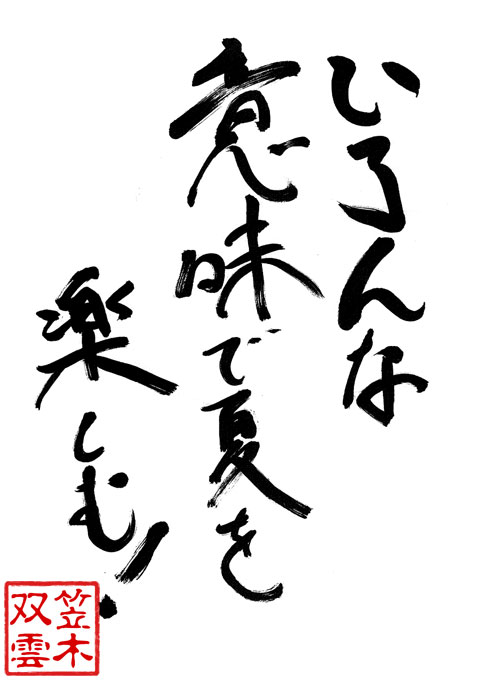 いろんな
意味で夏を
楽しむ!
笠木
双雲